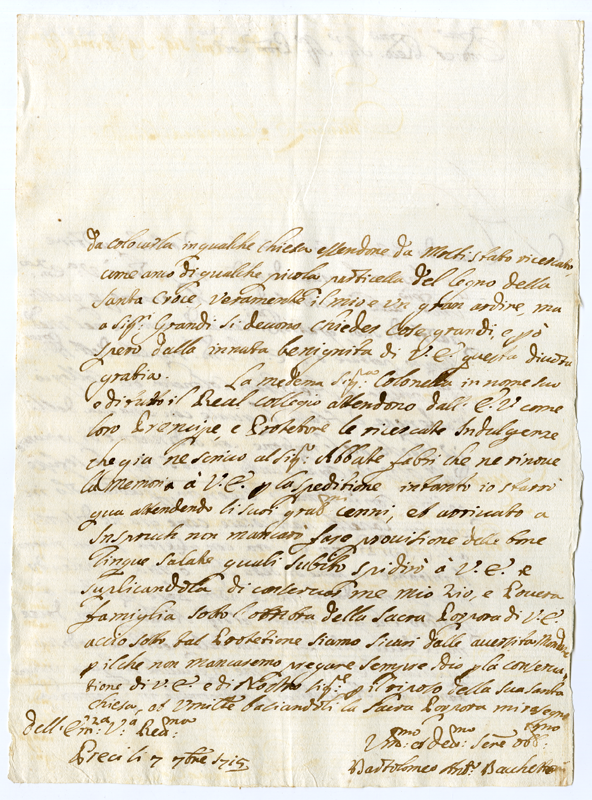 da colocarla in qualche chiesa essendone da Molti stato ricercato
come anco di qualche picola particella del legno della
Santa Croce veramente il mio e un gran ardire, ma
a Sig.ri Grandi si devono chieder Cose grandi, e p ciò
spero dalla innata benignita di V. E.
gratia. La medema Sig.ra Colonella in nome suo
e di tutto il Real Collegio attendono dall. E. V. come
loro Prencipe, e Protetore le ricercate Indulgenze
che gia ne scrivo al Sig.r Abbate fabri che ne rinove
la memoria à V. E. p la speditione intanto io starrò
qua attendendo li suoi grad.mi cenni, et arrivato a
Inspruch non mancarò fare provisione delle bone
lingue salate quali subito spidirò à V. E. e
suplicandola di conservar me mio Zio, e Povera
famiglia sotto l'ombra della Sacra Porpora di V. E.
accio sotto tal Protetione siamo sicuri dalle aversita
p il che non mancaremo pregare sempre Idio p la conserva
tione di V. E. e di Nostro Sig.re p il riposo della sua Santa
chiesa, et Umilte baciandoli la Sacra Porpora mi rasegno
dell. Em.za V.a Rev.ma
Preci li 7 7bre 1715
Um.mo et Dev.mo Serv.e obb.mo
Bartolomeo Ant.o Bacchetti